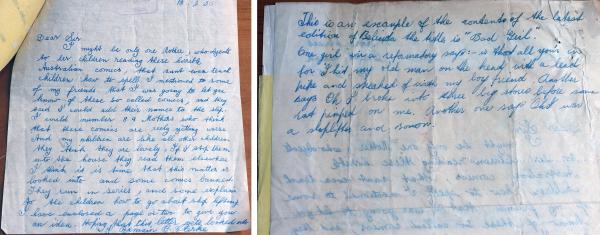 18.2.55
Dear Sir
I might be only one Mother, who objects
to her children reading these horrible
Australian comics, that dont even teach
children how to spell. I mentioned to some
of my friends that I was going to let you
know of these so called comics, and they
said I could add their names to the slip.
I could number 84 Mothers who think
that these comics are really getting worse
And my children are like all their children
they think they are lovely. If I stop them
into the house they read them elsewhere
I think it is time that this matter is
looked into and some comics banned
They run in series, and some explains
to the children how to go about shop lifting
I have enclosed a page or two to give you
an idea. Hoping that this letter gets looked into
I Remain
This is an example of the contents of the latest
edition of Belinda the title is "Bad Girl".
One girl in a reformatory says:- is that all your in
for I hit my old man on the head with a lead
pipe and sneaked off with my boy friend. Another
says Oh I broke into three big stores before some
rat pimped on me. Another one says Old was
a shoplifter and so on.